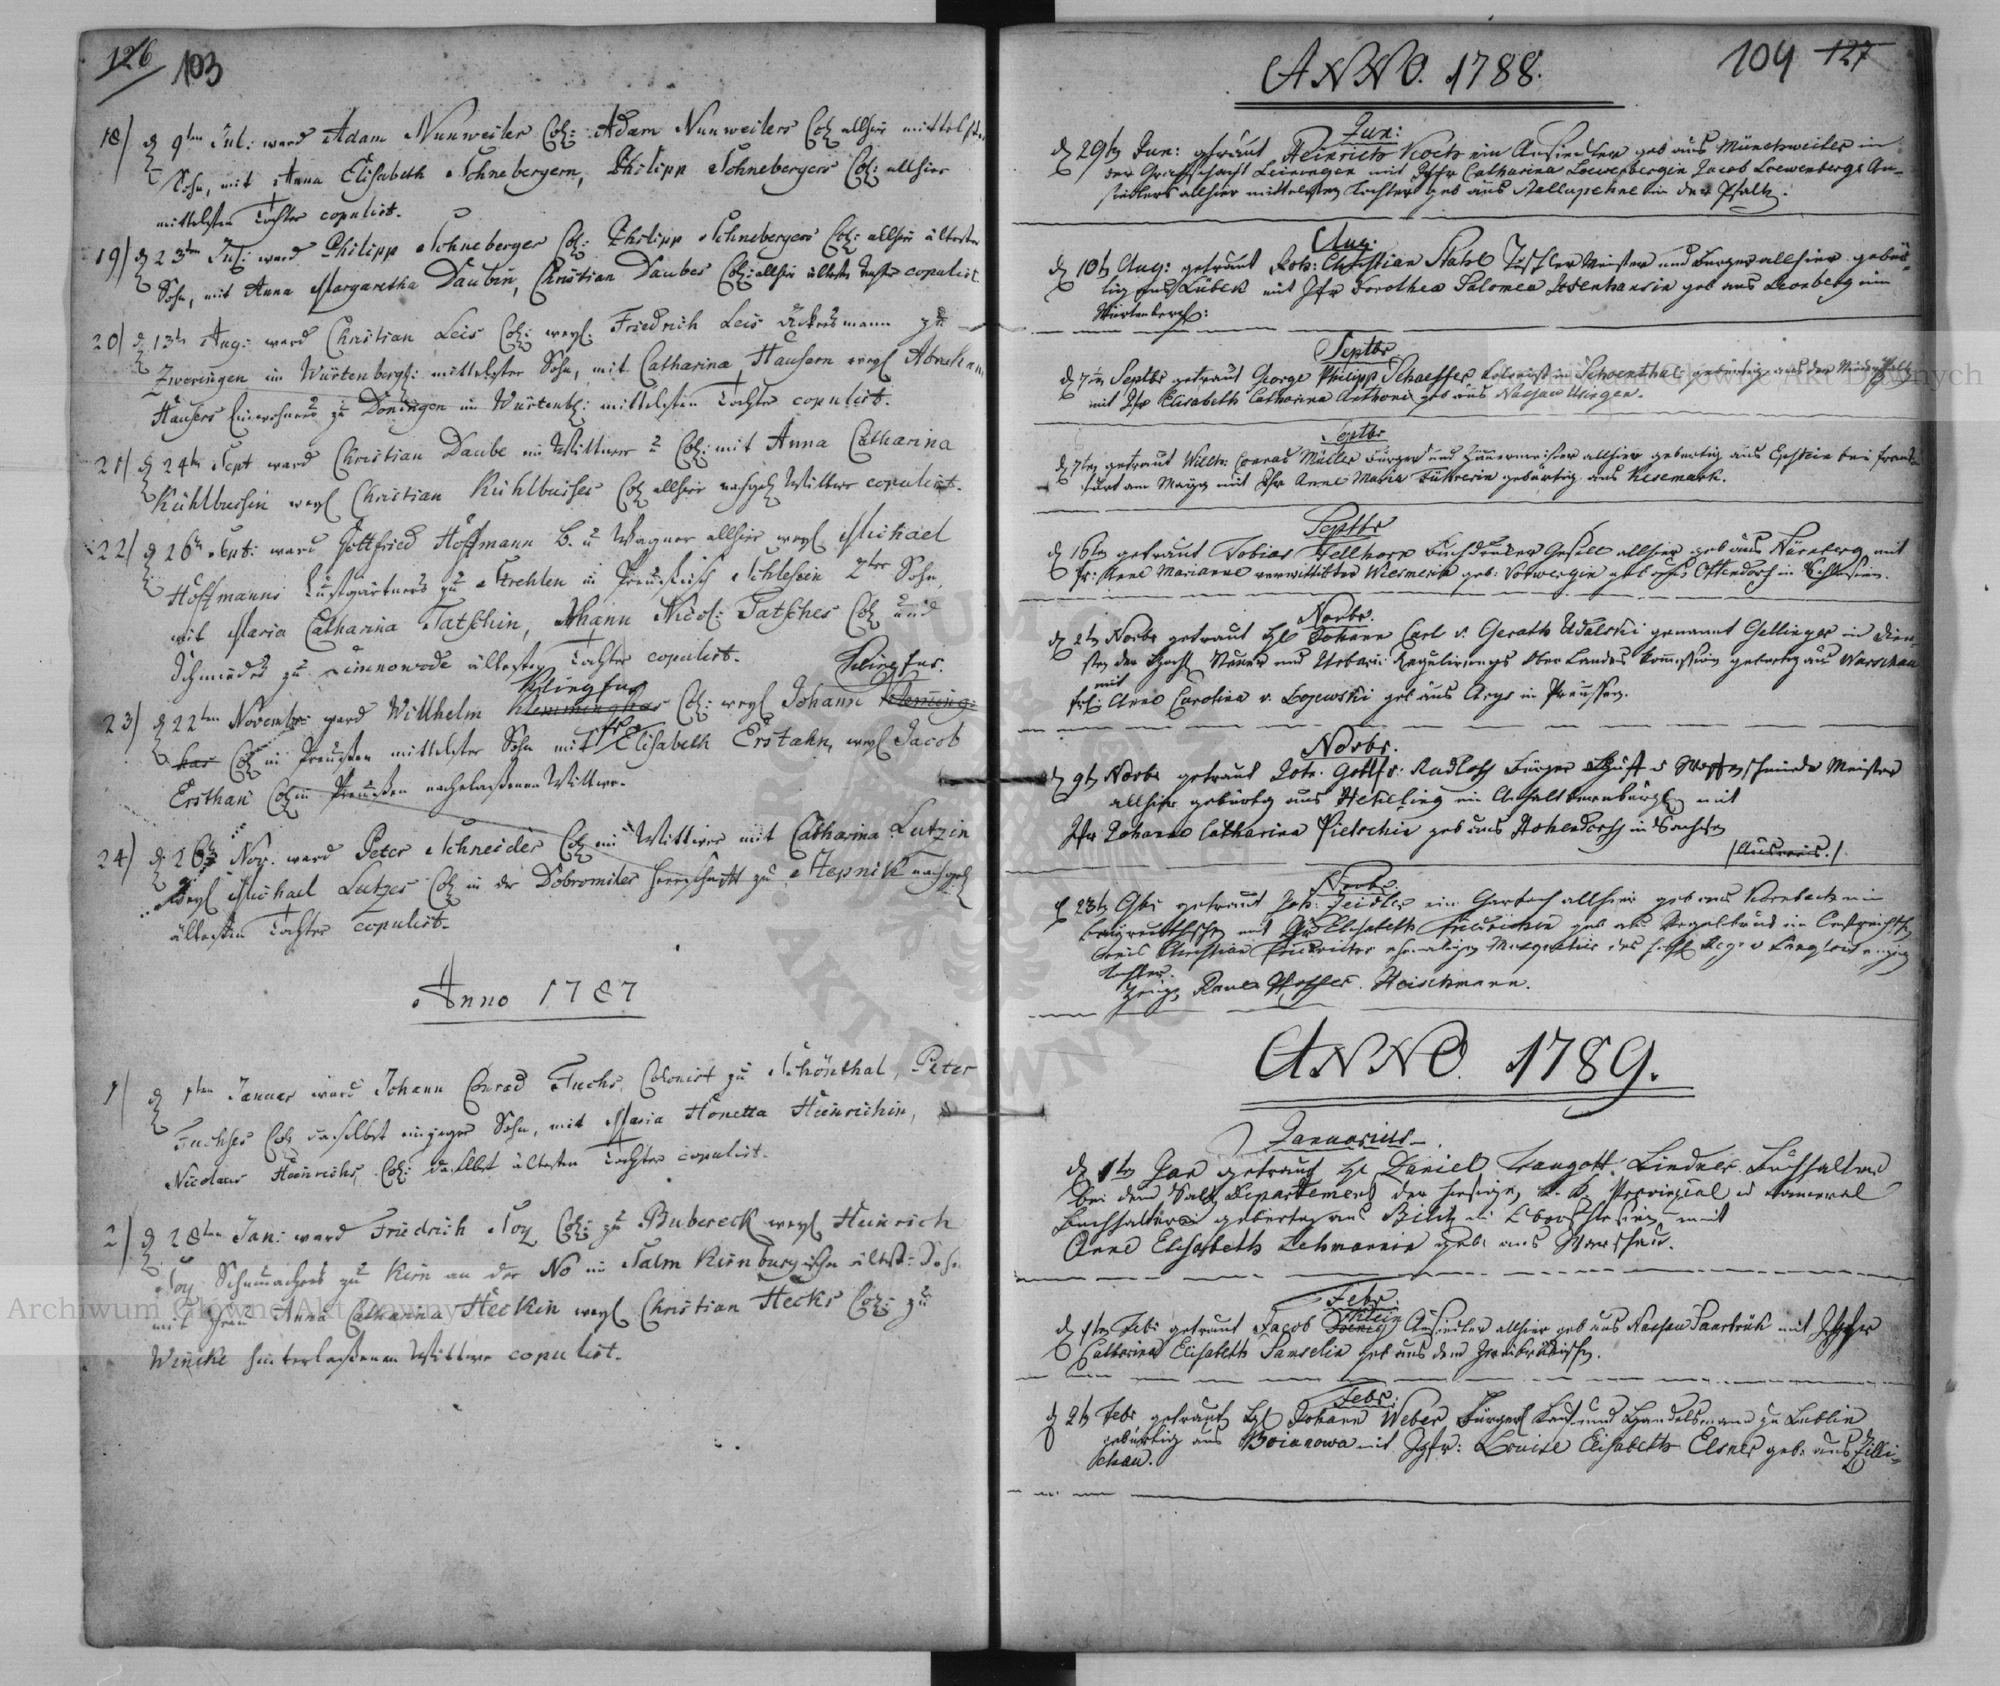 126 103
18) d 9ten Jul: ward Adam Nunweiler Col: Adam Nunweilers Col allhier mittelster
Sohn, mit Anna Elisabeth Schnebergern, Philipp Schnebergers Col: allhier
mittelsten Tochter copulirt.
19) d 23ten Jul: ward Philipp Schneberger Col: Philipp Schnebergers Col: allhier ältester
Sohn, mit Anna Margaretha Daubin, Christian Daubes Col: allhier älteste Tochter copulirt
20) d 13ten Aug: ward Christian Leis Col: weyl. Friedrich Leis Ackersmann zu
Zweringen im Würtenberg: mittelster Sohn, mit Catharina Hausern weyl Abraham
Hausers Einwohners zu Döningen im Würtenb: mittelsten Tochter copulirt.
21) d 24ten Sept ward Christian Daube ein Wittwer u Col: mit Anna Catharina
Kühlbusin weyl Christian Kühlbusches Col allhier nachgel Wittwe copulirt.
22) d 26ten Sept: ward Gottfried Hoffmann B. u Wagner allhier weyl Michael
Hoffmanns Lustgärtners zu Strehlen in Preussisch Schlesien 2ter Sohn
mit Maria Catharina Tatschin, Johann Nicol: Tatsches Col und
Schmiedes zu ältesten Tochter copulirt. Klingfus.
Klingfus
23) d 22ten Novembr ward Willhelm Col: weyl Johann
Col in Preussen mittelster Sohn mit Fr Elisabeth Erstahn, weyl Jacob
Ersthans Col in Preussen nachgelassenen Wittwe.
24) d 26 Nov. ward Peter Schneider Col ein Wittwer mit Catharina Lutzin
weyl Michael Lutzes Col in der Dobromiler Herrschaft zu nachgel
ältesten Tochter copulirt.
Anno 1787
1) d 1ten Januar ward Johann Conrad Fuchs, Colonist zu Schönthal, Peter
Fuchses Col daselbst einziger Sohn, mit Maria Honetta Heinrichin,
Nicolaus Heinrichs, Col: daselbst ältesten Tochter copulirt.
2) d 28ten Jan: ward Friedrich Noy Col: zu Bubereck weyl Heinrich
Noy Schumachers zu Kirn an der No im Salm Kirnburgischen ältest: Sohn
mit Frau Anna Catharina Heckin weyl Christian Hecks Col: zu
hinterlassenen Wittwe copulirt.
ANNO. 1788.
104 127
Jun:
d 29ten Jun: getraut Heinrich Koch ein Ansiedler geb aus Münchweiler in
der Graffschaft Leiningen mit Jgfr Catharina Loewenbergin Jacob Loewenbergs An-
siedlers allhier mittelsten Tochter geb aus in der Pfaltz.
Aug:
d 10ten Aug: getraut Joh: Christian Stahl Tischler Meister und Burger allhier gebür-
tig aus Lübek mit Jgfr Dorothea Salomea Losenhansin geb aus Leonberg im
Würtenberg:
Septbr
d 7ten Septbr getraut George Philipp Schaeffer Colonist in Schoenthal gebürtig aus der
mit Jgfr Elisabeth Catharina Anthoni geb aus Nassau Usingen.
Septbr
d 7ten getraut Wilh: Conrad Müller Burger und Zimmermeister allhier gebürtig aus Epstein bei Frank-
furt am Mayn mit Jgfr Anne Maria gebürtig aus Kesemark.
Septbr
d 16ten getraut Tobias Fellhorn Buchdruker Gesell allhier geb aus Nürnberg mit
Fr: Anne Marianne verwittibten Wiesmerin geb: Vorwergin geb aus Ottendorf in Schlesien.
Novbr.
d 2ten Novbr getraut Hl Johann Carl v. Gerath Udalski genannt Gellinger in Dien-
sten der Steuer und Urbari: Regulirungs Ober Landes Commission gebürtig aus Warschau
mit
Frl: Anne Carolina v. Lojewski geb aus Arys in Preussen.
Novbr.
d 9ten Novbr getraut Joh. Gottfr: Radloff Burger Huff u Waffenschmiede Meister
allhier gebürtig aus Heklling im Anhalt Bernburg mit
Jgfr Johanne Catharina Pietschin geb aus Hohendorff in Sachsen
Novbr.
d 23ten 9br: getraut Joh: Zeidler ein Garkoch allhier geb aus im
Bayreuthischen mit Jgfr Elisabeth geb aus im
weil Christian ehemaligen des
Tochter.
Zeugen Hoffer. Heischmann.
ANNO. 1789.
Januarius
d 1ten Jan getraut Hl Daniel Traugott Lindner Buchhalter
bei dem Salz Departement der hiesigen k. k. Provinzial u Kameral
Buchhalterei gebürtig aus Biliz in Oberschlesien mit
Anne Elisabeth Lehmannin geb: aus Warschau.
Febr.
Klein
d 1ten Febr getraut Jacob Ansiedler allhier geb aus Nassau Saarbrük mit Jgfr
Catharina Elisabeth geb aus dem Zweibrükischen.
Febr.
d 2ten Febr getraut Hl Johann Weber Burgerl Kauf und Handelsmann zu Lublin
gebürtig aus Boianowa mit Jgfr: Louise Elisabeth Elsner geb: aus Zilli-
chau.
Archiwum Główne Akt Dawnych
Archiwum Główne Akt Dawnych